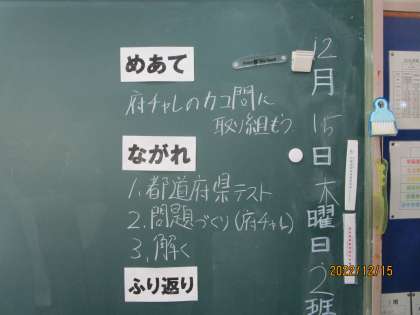 めあて
府チャレのカコ問に
取り組もう
ながれ
1. 都道府県テスト
2. 問題づくり(府チャレ)
3. 解く
ふり返り
12月15日木曜日2班
2022/12/15